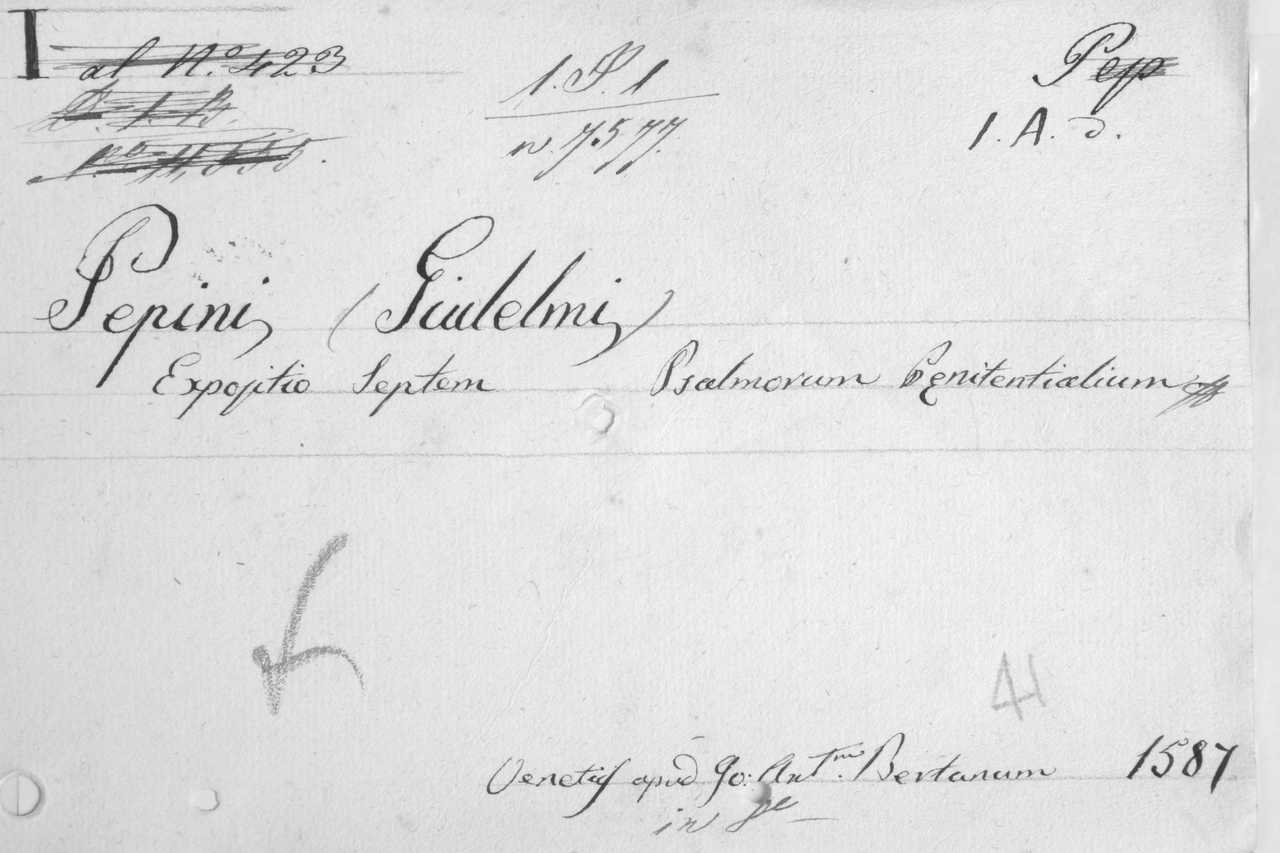 I
al N.º 423
D. 1. B.
1. P. 1
n. 7577.
Pep
1. A. d.
Pepini (Giulelmi)
Expositio Septem Psalmorum Penitentialium
41
Venetijs apud Jo: Ant.m Bertanum 1587
in 8.e